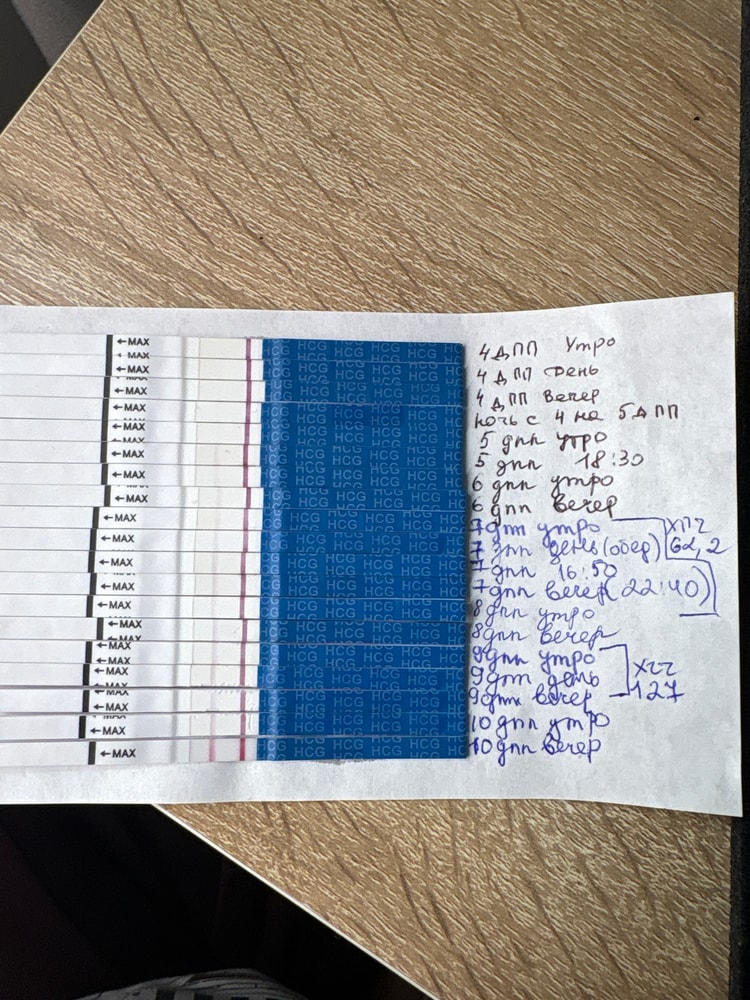 4 ДПП Утро
4 ДПП День
4 ДПП Вечер
ночь с 4 на 5 ДПП
5 дпп утро
5 дпп 18:30
6 дпп утро
6 дпп вечер
7 дпп утро
7 дпп день (обер)
ХГЧ
62,2
7 дпп 16:50
7 дпп вечер (22:40)
8 дпп утро
8 дпп вечер
9 дпп утро
9 дпп день
9 дпп вечер
ХГЧ
127
10 дпп утро
10 дпп вечер
←MAX
←MAX
←MAX
←MAX
←MAX
←MAX
←MAX
←MAX
←MAX
←MAX
←MAX
←MAX
←MAX
←MAX
←MAX
←MAX
←MAX
←MAX
←MAX
←MAX
←MAX
←MAX
←MAX
HCG HCG HCG HCG